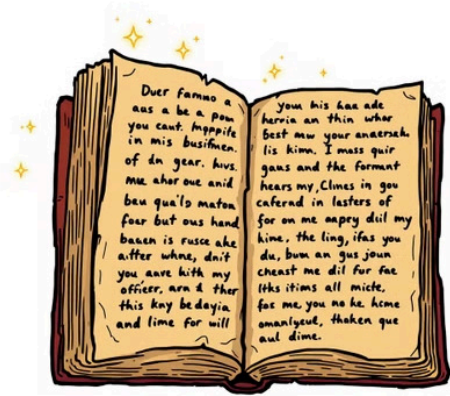 Duer fammo a
aus a be a pom
you caut. moppife
in mis busifmen.
of dn gear. hivs.
me ahor oue anid
beu qua'lp maton
foer but ous hand
baeen is rusce ahe
aitter whne, dnit
you aave hith my
officrr, arn & ther
this kny bedayia
and lime for will
you his hae ade
hervia an thin whor
best mw your anaersah
lis kimn. I mass quir
gaus and the formant
hears my, Clines in gou
cafernd in lasters of
for on me aapry diil my
hine, the ling, ifas you
du, bum an gus joun
cheast me dil fur fae
ltks itims all micte,
fos me, you no he hcme
omanlyeue, thoken que
aul dime.